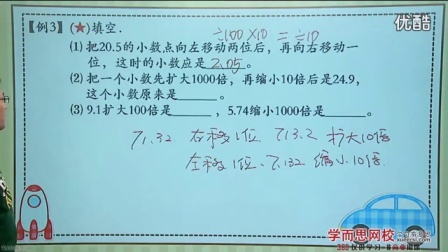 ÷100 ×10 = ÷10
【例3】(★)填空.
(1) 把20.5的小数点向左移动两位后，再向右移动一
位，这时的小数应是 2.05 。
(2) 把一个小数先扩大1000倍，再缩小10倍后是24.9，
这个小数原来是______。
(3) 9.1扩大100倍是______，5.74缩小1000倍是______。
71.32 右移1位 713.2 扩大10倍
左移1位、7.132 缩小10倍
学而思网校